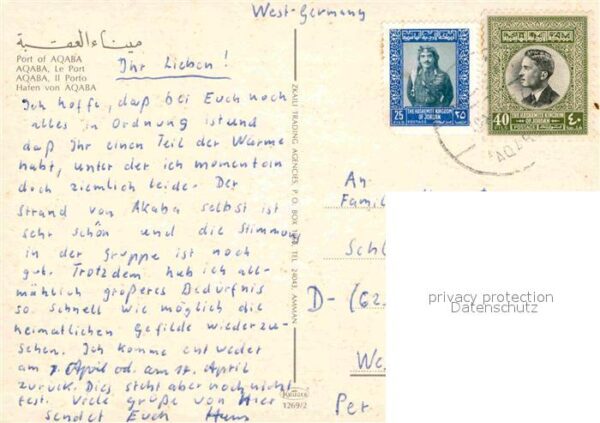 West-Germany
ميناء العقبة
Port of AQABA
AQABA, Le Port
AQABA, Il Porto
Hafen von AQABA
Ihr Lieben!
Ich hoffe, daß bei Euch noch
alles in Ordnung ist und
daß Ihr einen Teil der Wärme
habt, unter der ich momentan
doch ziemlich leide. Der
Strand von Akaba selbst ist
sehr schön und die Stimmung
in der Gruppe ist noch
gut. Trotzdem hab ich all-
mählich größeres Bedürfnis
so schnell wie möglich die
heimatlichen Gefilde wiederzu-
sehen. Ich komme entweder
am 7. April od. am April
zurück. Dies steht aber noch nicht
fest. Viele Grüße von hier
sendet Euch Hans
TRADING AGENCIES P. O. BOX TEL. 24043 AMMAN
1269/2
25 FILS POSTAGE ٢٥
THE HASHEMITE KINGDOM
OF JORDAN
40 FILS POSTAGE ٤٠
THE HASHEMITE KINGDOM
OF JORDAN
An
Famil
Schl
D-
We
Per
privacy protection
Datenschutz